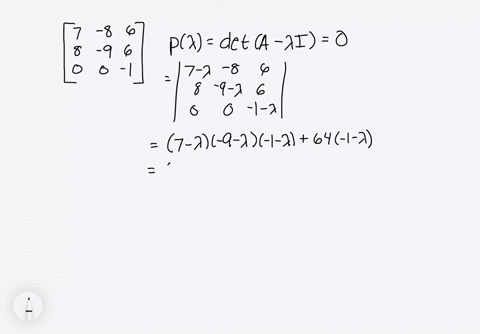 [7 -8 6
8 -9 6
0 0 -1]
P(λ) = det(A - λI) = 0
= |7-λ -8 6
8 -9-λ 6
0 0 -1-λ|
= (7-λ)(-9-λ)(-1-λ) + 64(-1-λ)
=